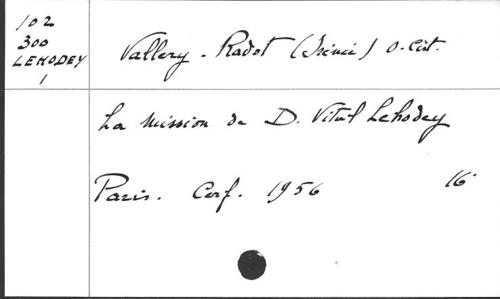 102
300
LEHODEY
1
Vallery-Radot (Irénée) O. Cist.
La mission de D. Vital Lehodey
Paris. Cerf. 1956 16°